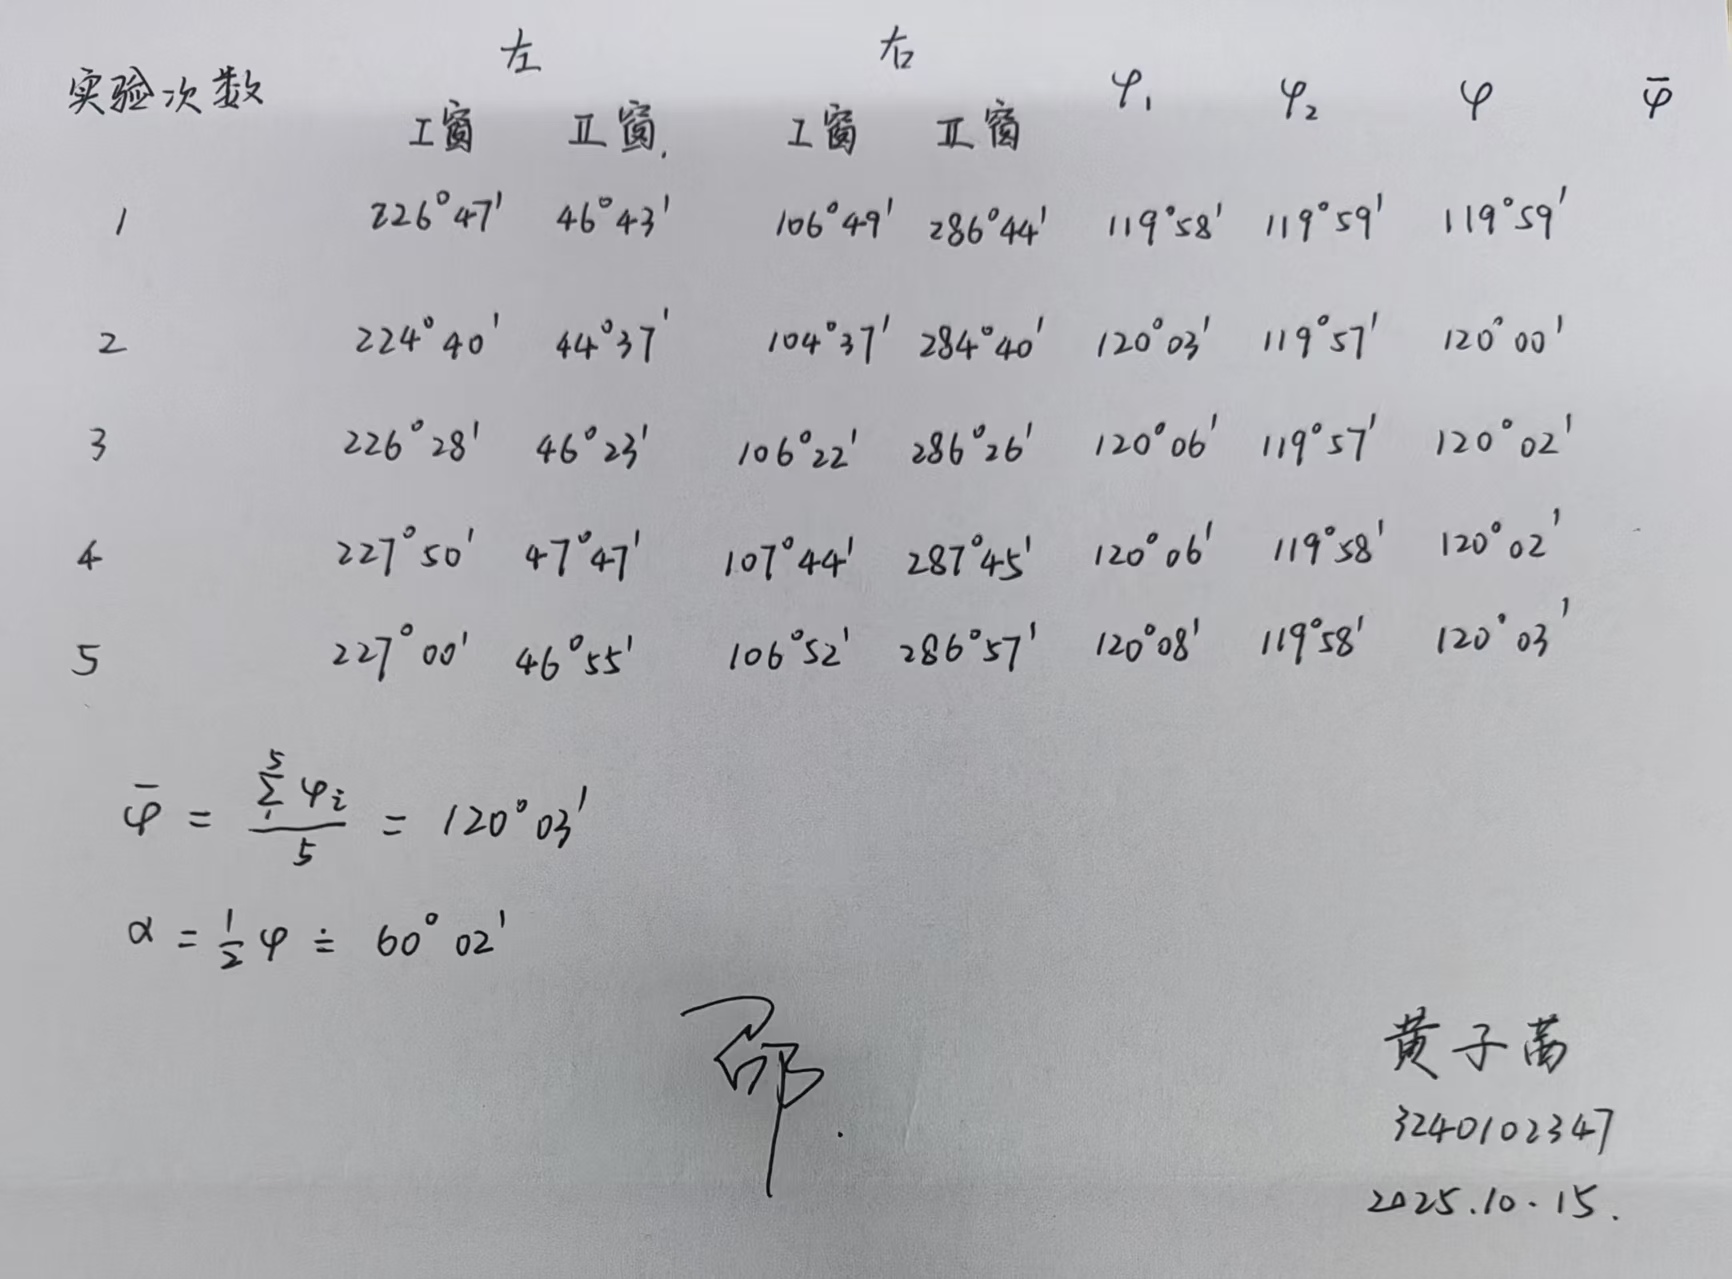 左 右
实验次数 φ₁ φ₂ φ φ̄
I窗 II窗. I窗 II窗
1 226°47' 46°43' 106°49' 286°44' 119°58' 119°59' 119°59'
2 224°40' 44°37' 104°37' 284°40' 120°03' 119°57' 120°00'
3 226°28' 46°23' 106°22' 286°26' 120°06' 119°57' 120°02'
4 227°50' 47°47' 107°44' 287°45' 120°06' 119°58' 120°02'
5 227°00' 46°55' 106°52' 286°57' 120°08' 119°58' 120°03'
φ̄ = (Σ₁⁵ φᵢ)/5 = 120°03'
α = 1/2 φ ≐ 60°02'
邵.
黄子
3240102347
2025.10.15.